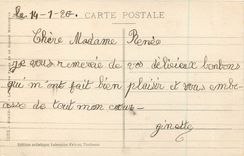 Le 14-1-20-
CARTE POSTALE
Chère Madame Renée
Je vous remercie de vos délicieux bonbons
qui m'ont fait bien plaisir et vous emb-
asse de tout mon cœur-
Ginette
Edition artistique Toulouse